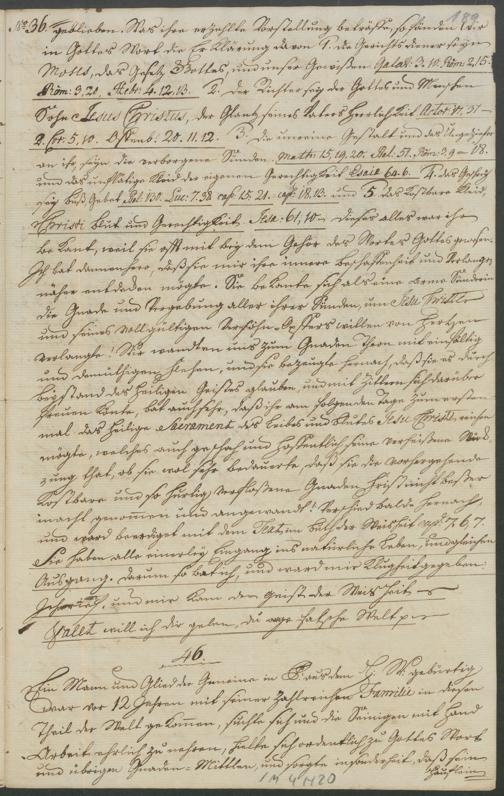 No 36. geblieben. Was ihre erzehlte Vorstellung beträffe, so fänden wir
in Gottes Wort die Erklärung davon 1. die Gerichtsdiener seyn
Moses, das Gesetz Gottes, und unser Gewissen Galat: 3.10. Röm: 2,15.
Röm: 3.20, Hebr: 4.12.13. 2. Der Richter sey der Gottes und Menschen
Sohn Jesus Christus, der Glantz seines Vaters Herrlichkeit Actor: 17.31 –
2. Cor: 5,10. Offenb: 20.11.12. 3. Die unreine Gestalt und das Ungeziefer
an ihr seyn die verborgene Sünden, Math: 15,19.20. 3.9 – 18.
und das unflätige Kleid der eigenen Gerechtigkeit Esaie 64.6. 4. das
sey Buß Gebet 130. Luc: 7.38 cap: 15.21. cap: 18.13. und 5. das kostbare Kleid
Christi Blut und Gerechtigkeit. Jesa: 61,10 – dieses alles war ihr
bekant, weil sie oft mit bey dem Gehör des Wortes Gottes gewesen.
Ich bat dannenhero, daß sie mir ihre innere Beschaffenheit und Verlangen
näher entdecken mögte. Sie bekante sich als eine arme Sünderin
die Gnade und Vergebung aller ihrer Sünden, um Jesu Christi
und seines vollgültigen Versöhn-Opfers willen von Hertzen
verlangte! Wir wandten uns zum Gnaden Thron mit einfältig
und demüthigem Flehen, und sie bezeugte hernach, daß sie es durch
Beystand des Heiligen Geistes glauben, und mit Zittern sich darüber
freuen könte, bat auch sehr, daß ihr am folgenden Tage zum ersten
mal das heilige Sacrament des Leibes und Blutes Jesu Christi reichen
mögte, welches auch geschah und hoffentlich seine verheißene Wirk-
zung that, ob sie wol sehr bedauerte, daß sie die vorhergehende
kostbare und so hurtig verfloßene Gnaden Frist nicht beßer
in acht genommen und angewandt! Verschied balde hernach,
und ward beerdiget mit dem Text im Buch der Weisheit cap: 7.6,7.
Sie haben alle einerley Eingang ins natürliche Leben, und gleichen
Ausgang. Darum so bat ich, und ward mir Klugheit gegeben:
Ich rief, und mir kam der Geist der Weisheit –
Valet will ich dir geben, du arge falsche Welt p
46.
Ein Mann und Glied der Gemeine in aus dem gebürtig
war vor 12 Jahren mit seiner Zahlreichen Familie in diesen
Theil der Welt gekommen, suchte sich und die Seinigen mit Hand
Arbeit ehrlich zu nehren, hielte sich ordentlich zu Gottes Wort
und übrigen Gnaden-Mittlen, und sorgte insonderheit, daß sein
Häuflein